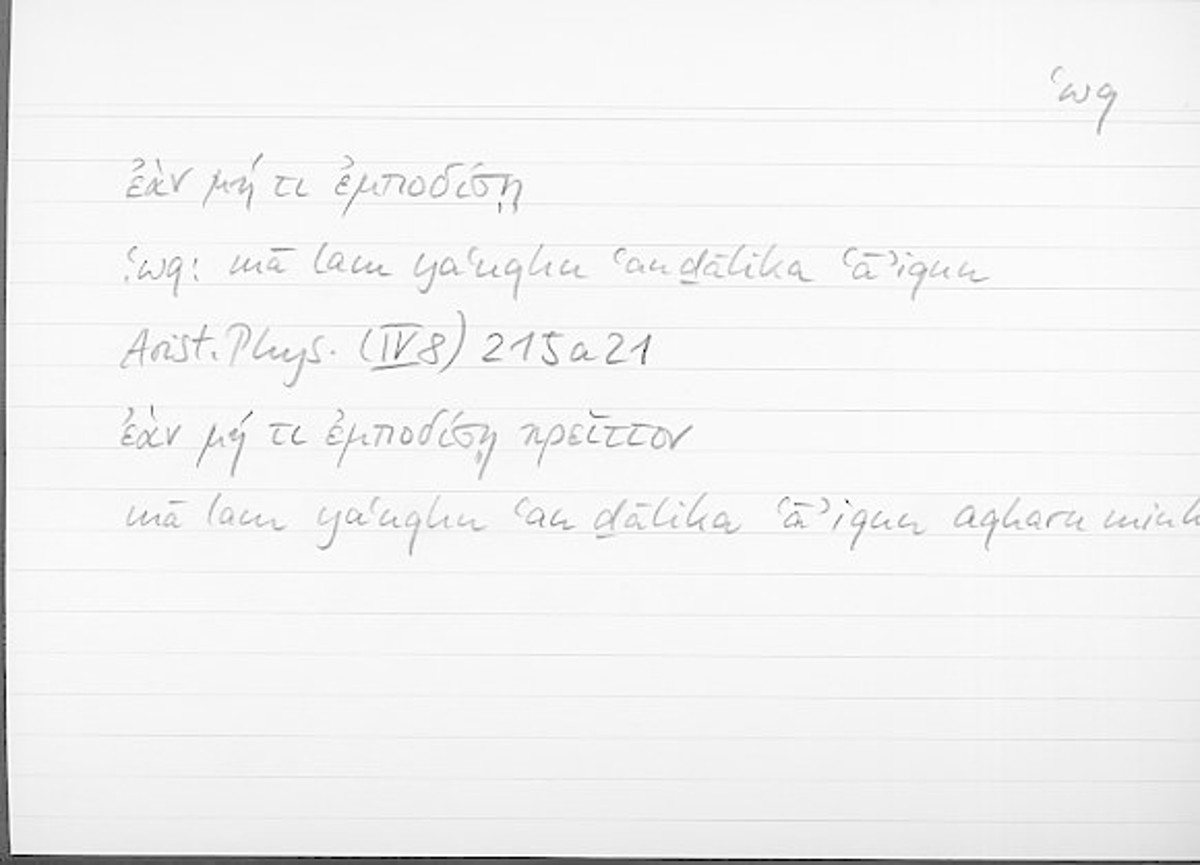 ʿwq
ἐὰν μή τι ἐμποδίσῃ
ʿwq: mā lam yaʿuqhu ʿan ḏālika ʿāʾiqun
Arist. Phys. (IV 8) 215 a 21
ἐὰν μή τι ἐμποδίσῃ κρεῖττον
mā lam yaʿuqhu ʿan ḏālika ʿāʾiqun aqharu minh